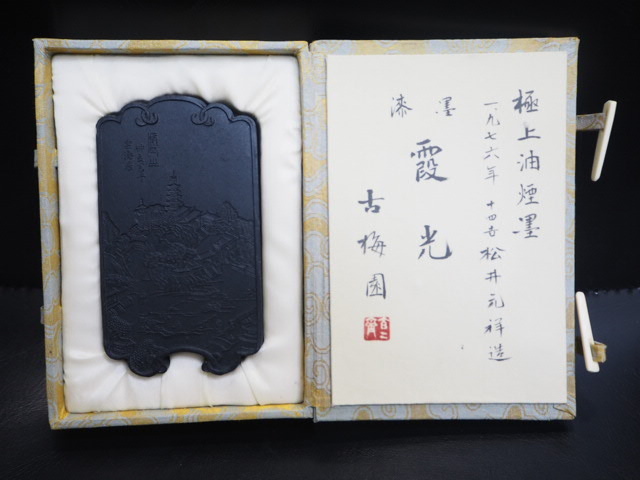 極上油煙墨
一九七六年 十四世松井元祥造
漆 墨
霞光
古梅園